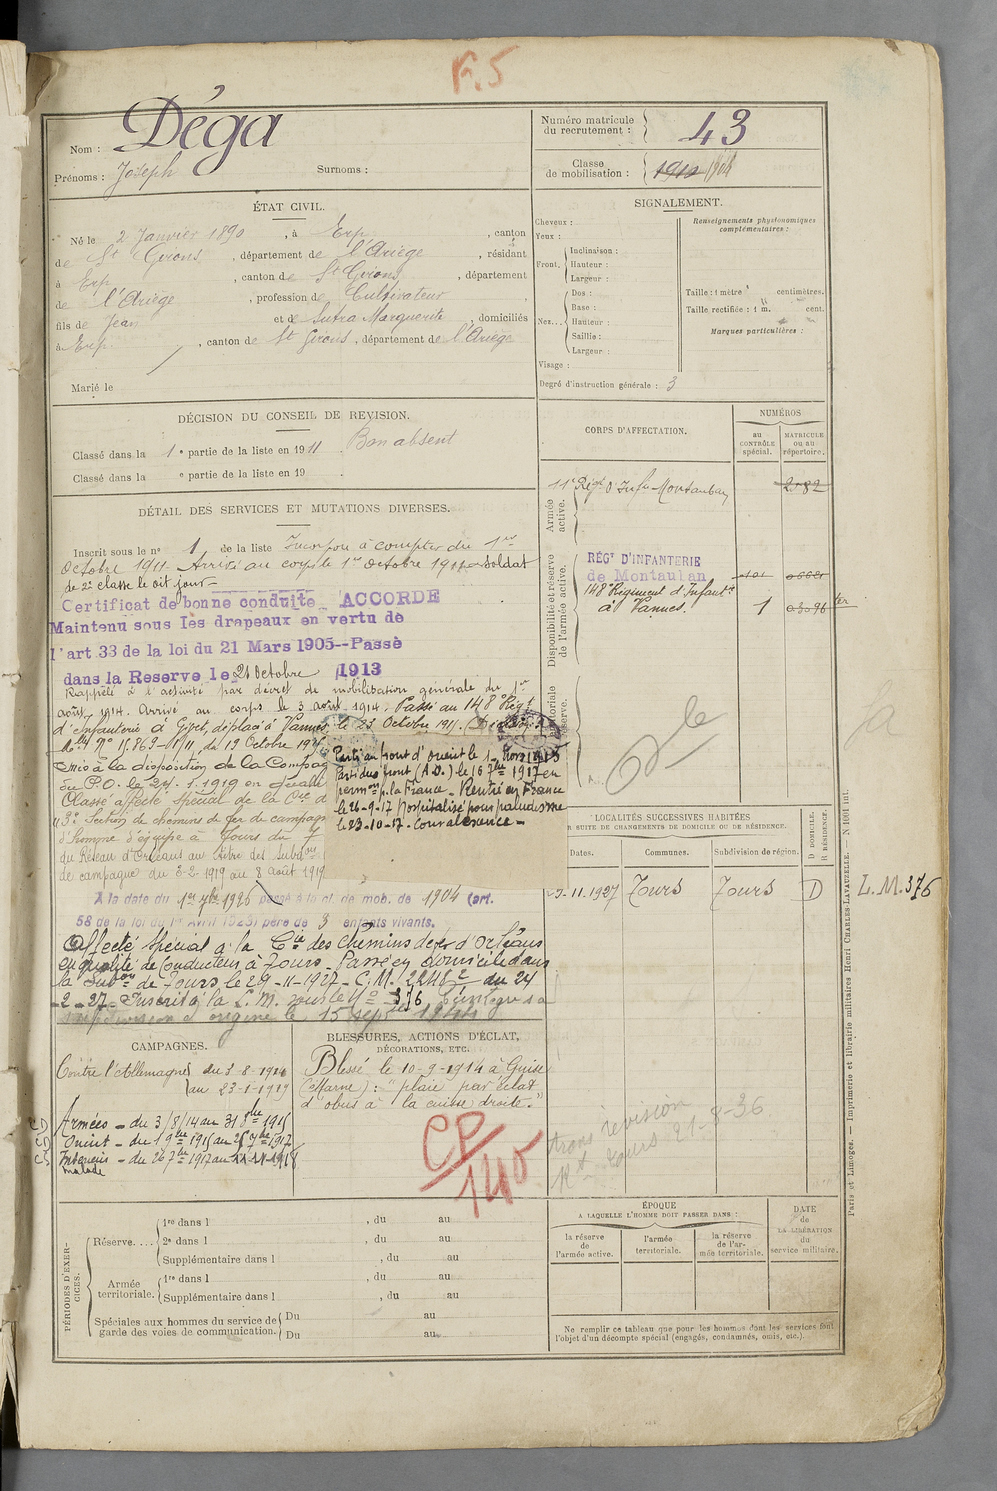 F.5
Nom : Déga
Prénoms : Joseph Surnoms :
Numéro matricule du recrutement : 43
Classe de mobilisation : 1910 1904
ÉTAT CIVIL.
Né le 2 Janvier 1890, à Erp, canton
de St Girons, département de l'Ariège, résidant
à Erp, canton de St Girons, département
de l'Ariège, profession de Cultivateur
fils de Jean et de Sutra Marguerite, domiciliés
à Erp, canton de St Girons, département de l'Ariège
Marié le
SIGNALEMENT.
Cheveux :
Yeux :
Front. Inclinaison :
Hauteur :
Largeur :
Nez... Dos :
Base :
Hauteur :
Saillie :
Largeur :
Visage :
Degré d'instruction générale : 3
Renseignements physionomiques complémentaires :
Taille : 1 mètre " centimètres.
Taille rectifiée : 1 m. " cent.
Marques particulières :
DÉCISION DU CONSEIL DE REVISION.
Classé dans la 1e partie de la liste en 1911. Bon absent
Classé dans la e partie de la liste en 19 .
DÉTAIL DES SERVICES ET MUTATIONS DIVERSES.
Inscrit sous le no 1 de la liste Incorporé à compter du 1er
Octobre 1911. Arrivé au corps le 1er octobre 1911 soldat
de 2e classe le dit jour
Certificat de bonne conduite ACCORDÉ
Maintenu sous les drapeaux en vertu de
l'art 33 de la loi du 21 Mars 1905--Passé
dans la Reserve le 21 Octobre 1913
Rappelé à l'activité par décret de mobilisation générale du 1er
août 1914. Arrivé au corps le 3 août 1914. Passé au 148e Régt
d'Infanterie à Givet, déplacé à Vannes, le 23 Octobre 1914.
du 19 Octobre 191
mis à la disposition de la Compag
du P.O. le 24.1.1919 en qualité
Classé affecté spécial de la Cie d
3e Section de chemins de fer de campagn
d'homme d'équipe à Tours du
du Réseau d'Orléans au titre des Subdons
de campagne du 3-2-1919 au 8 août 1919
Parti au front d'orient le 1- 1915
Parti du front (A.D.) le 16 7bre 1917 en
permon p. la France - Rentré en France
le 26-9-17 hospitalisé pour paludisme
le 23-10-17 - Convalescence -
A la date du 1er 7bre 1926 passé à la cl. de mob. de 1904 (art.
58 de la loi du 1er Avril 1923) père de 3 enfants vivants.
Affecté spécial à la Cie des Chemins de fer d'Orléans
en qualité de Conducteur à Tours - Passé en domicile dans
la Subon de Tours, le 29-11-1927 - C.M. du 24
-2-27 - Inscrit à la L.M. sous le No 376 Réintègre sa
subdivision d'origine le 15 sept 1944
CORPS D'AFFECTATION.
NUMÉROS
au CONTRÔLE spécial.
MATRICULE ou au répertoire.
Armée active.
11e Régt d'Infie Montauban 2082
Disponibilité et réserve de l'armée active.
RÉGT D'INFANTERIE
de Montauban
148e Régiment d'Infanterie
à Vannes. 1
LOCALITÉS SUCCESSIVES HABITÉES
PAR SUITE DE CHANGEMENTS DE DOMICILE OU DE RÉSIDENCE.
Dates. Communes. Subdivision de région. D DOMICILE. R RÉSIDENCE
29-11-1927 Tours Tours D
L.M. 376
CAMPAGNES.
Contre l'Allemagne du 3-8-1914
au 23-1-1919
Armées - du 3/8/14 au 31 8bre 1915
Orient - du 1 9bre 1915 au 25 7bre 1917
Intérieur - du 26 7bre 1917 au 11-11-1918
malade
BLESSURES, ACTIONS D'ÉCLAT,
DÉCORATIONS, ETC.
Blessé le 10-9-1914 à Guise
(Marne) : "plaie par éclat
d'obus à la cuisse droite."
CP/140
trans révision
Rt Tours 21-8-36
PÉRIODES D'EXERCICES.
Réserve....
1re dans l , du au
2e dans l , du au
Supplémentaire dans l , du au
Armée territoriale.
1re dans l , du au
Supplémentaire dans l , du au
Spéciales aux hommes du service de garde des voies de communication.
Du au
Du au
ÉPOQUE
A LAQUELLE L'HOMME DOIT PASSER DANS :
la réserve de l'armée active.
l'armée territoriale.
la réserve de l'armée territoriale.
DATE de LA LIBÉRATION du service militaire.
Ne remplir ce tableau que pour les hommes dont les services font
l'objet d'un décompte spécial (engagés, condamnés, omis, etc.).
Paris et Limoges. — Imprimerie et librairie militaires Henri CHARLES-LAVAUZELLE. — N 1001 int.